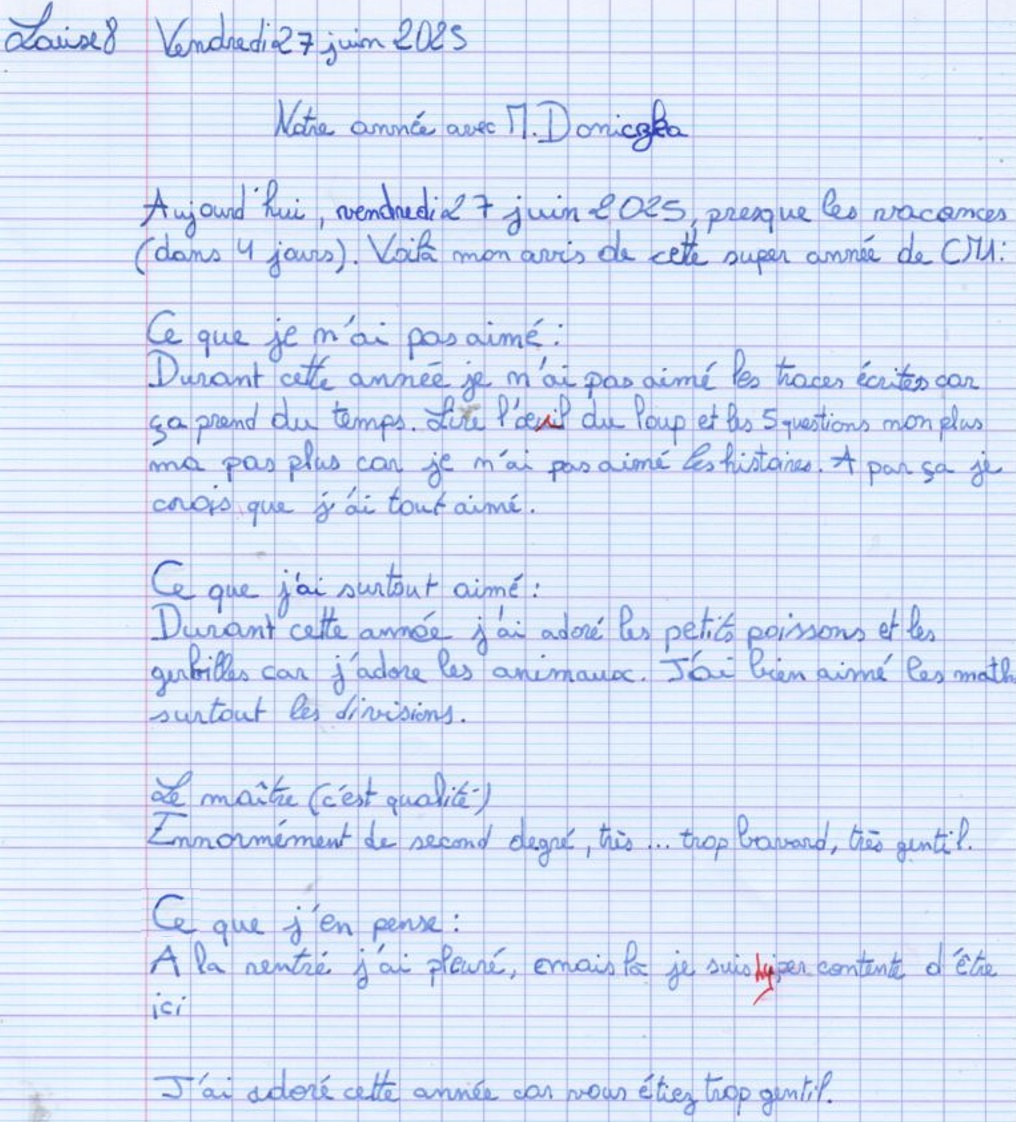 Louise 8 Vendredi 27 juin 2025
Notre année avec M. Doniczka
Aujourd'hui, vendredi 27 juin 2025, presque les vacances
(dans 4 jours). Voilà mon avis de cette super année de CM1:
Ce que je n'ai pas aimé :
Durant cette année je n'ai pas aimé les traces écrites car
ça prend du temps. Lire l'œuil du loup et les 5 questions non plus
ma pas plus car je n'ai pas aimé les histoires. A par ça je
crois que j'ai tout aimé.
Ce que j'ai surtout aimé :
Durant cette année j'ai adoré les petits poissons et les
gerbilles car j'adore les animaux. J'ai bien aimé les math
surtout les divisions.
Le maître (c'est qualité)
Ennormément de second degré, très ... trop bavard, très gentil.
Ce que j'en pense :
A la rentré j'ai pleuré, mais là je suis hyper contente d'être
ici
J'ai adoré cette année car vous étiez trop gentil.